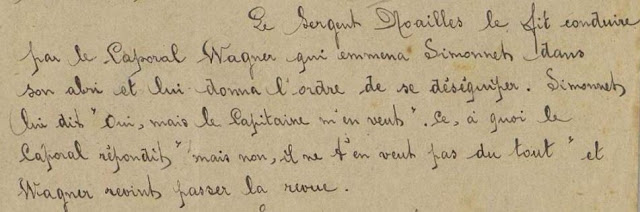 Le Sergent Noailles le fit conduire
par le Caporal Wagner qui emmena Simonnet dans
son abri et lui donna l'ordre de se déséquiper. Simonnet
lui dit "Oui, mais le Capitaine m'en veut". Ce, à quoi le
Caporal répondit "mais non, il ne t'en veut pas du tout" et
Wagner revint passer la revue.